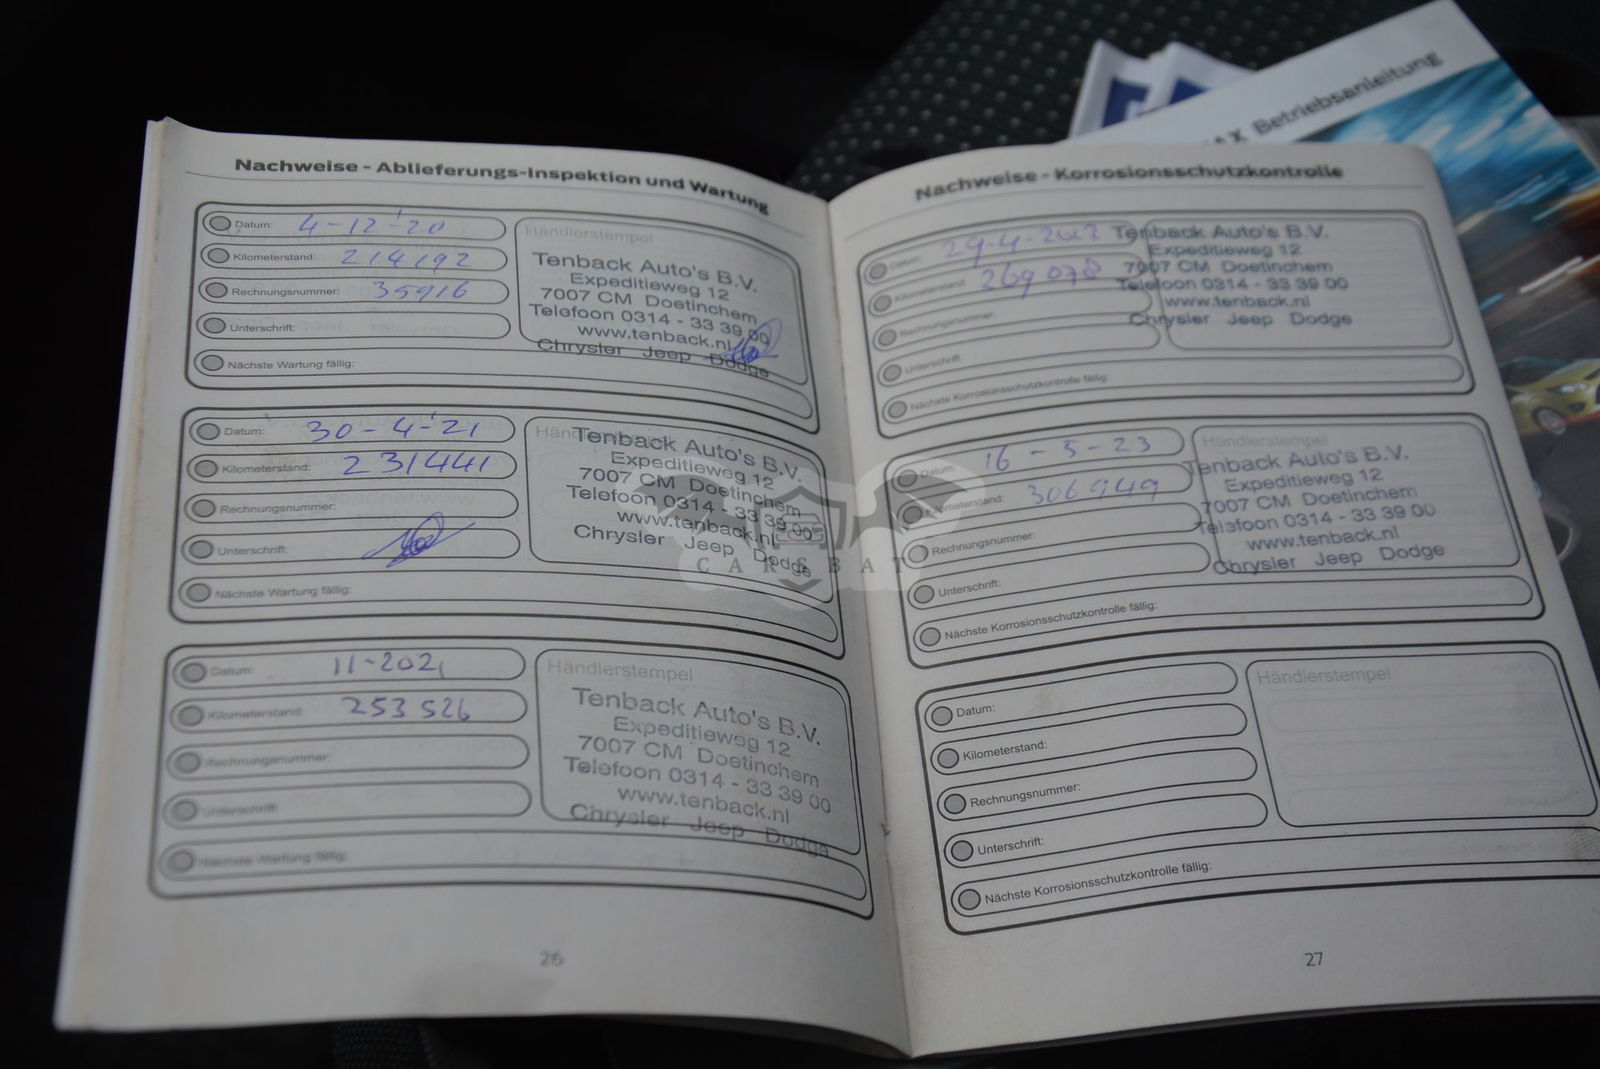 AX Betriebsanleitung
Nachweise - Ablieferungs-Inspektion und Wartung
Datum: 4-12-'20
Kilometerstand: 214192
Rechnungsnummer: 35916
Unterschrift:
Nächste Wartung fällig:
Händlerstempel
Tenback Auto's B.V.
Expeditieweg 12
7007 CM Doetinchem
Telefoon 0314 - 33 39 00
www.tenback.nl
Chrysler Jeep Dodge
Datum: 30-4-'21
Kilometerstand: 231441
Rechnungsnummer:
Unterschrift:
Nächste Wartung fällig:
Tenback Auto's B.V.
Expeditieweg 12
7007 CM Doetinchem
Telefoon 0314 - 33 39 00
www.tenback.nl
Chrysler Jeep Dodge
Datum: 11-2021
Kilometerstand: 253526
Rechnungsnummer:
Unterschrift:
Nächste Wartung fällig:
Händlerstempel
Tenback Auto's B.V.
Expeditieweg 12
7007 CM Doetinchem
Telefoon 0314 - 33 39 00
www.tenback.nl
Chrysler Jeep Dodge
26
Nachweise - Korrosionsschutzkontrolle
Datum: 29-4-2022
Kilometerstand: 269078
Rechnungsnummer:
Unterschrift:
Nächste Korrosionsschutzkontrolle fällig:
Tenback Auto's B.V.
Expeditieweg 12
7007 CM Doetinchem
Telefoon 0314 - 33 39 00
www.tenback.nl
Chrysler Jeep Dodge
Datum: 16-5-23
Kilometerstand: 306949
Rechnungsnummer:
Unterschrift:
Nächste Korrosionsschutzkontrolle fällig:
Händlerstempel
Tenback Auto's B.V.
Expeditieweg 12
7007 CM Doetinchem
Telefoon 0314 - 33 39 00
www.tenback.nl
Chrysler Jeep Dodge
Datum:
Kilometerstand:
Rechnungsnummer:
Unterschrift:
Nächste Korrosionsschutzkontrolle fällig:
Händlerstempel
27
CARSBAT